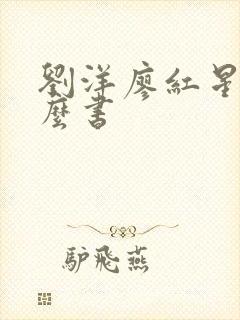 劉洋廖紅星
麼書
驢飛燕